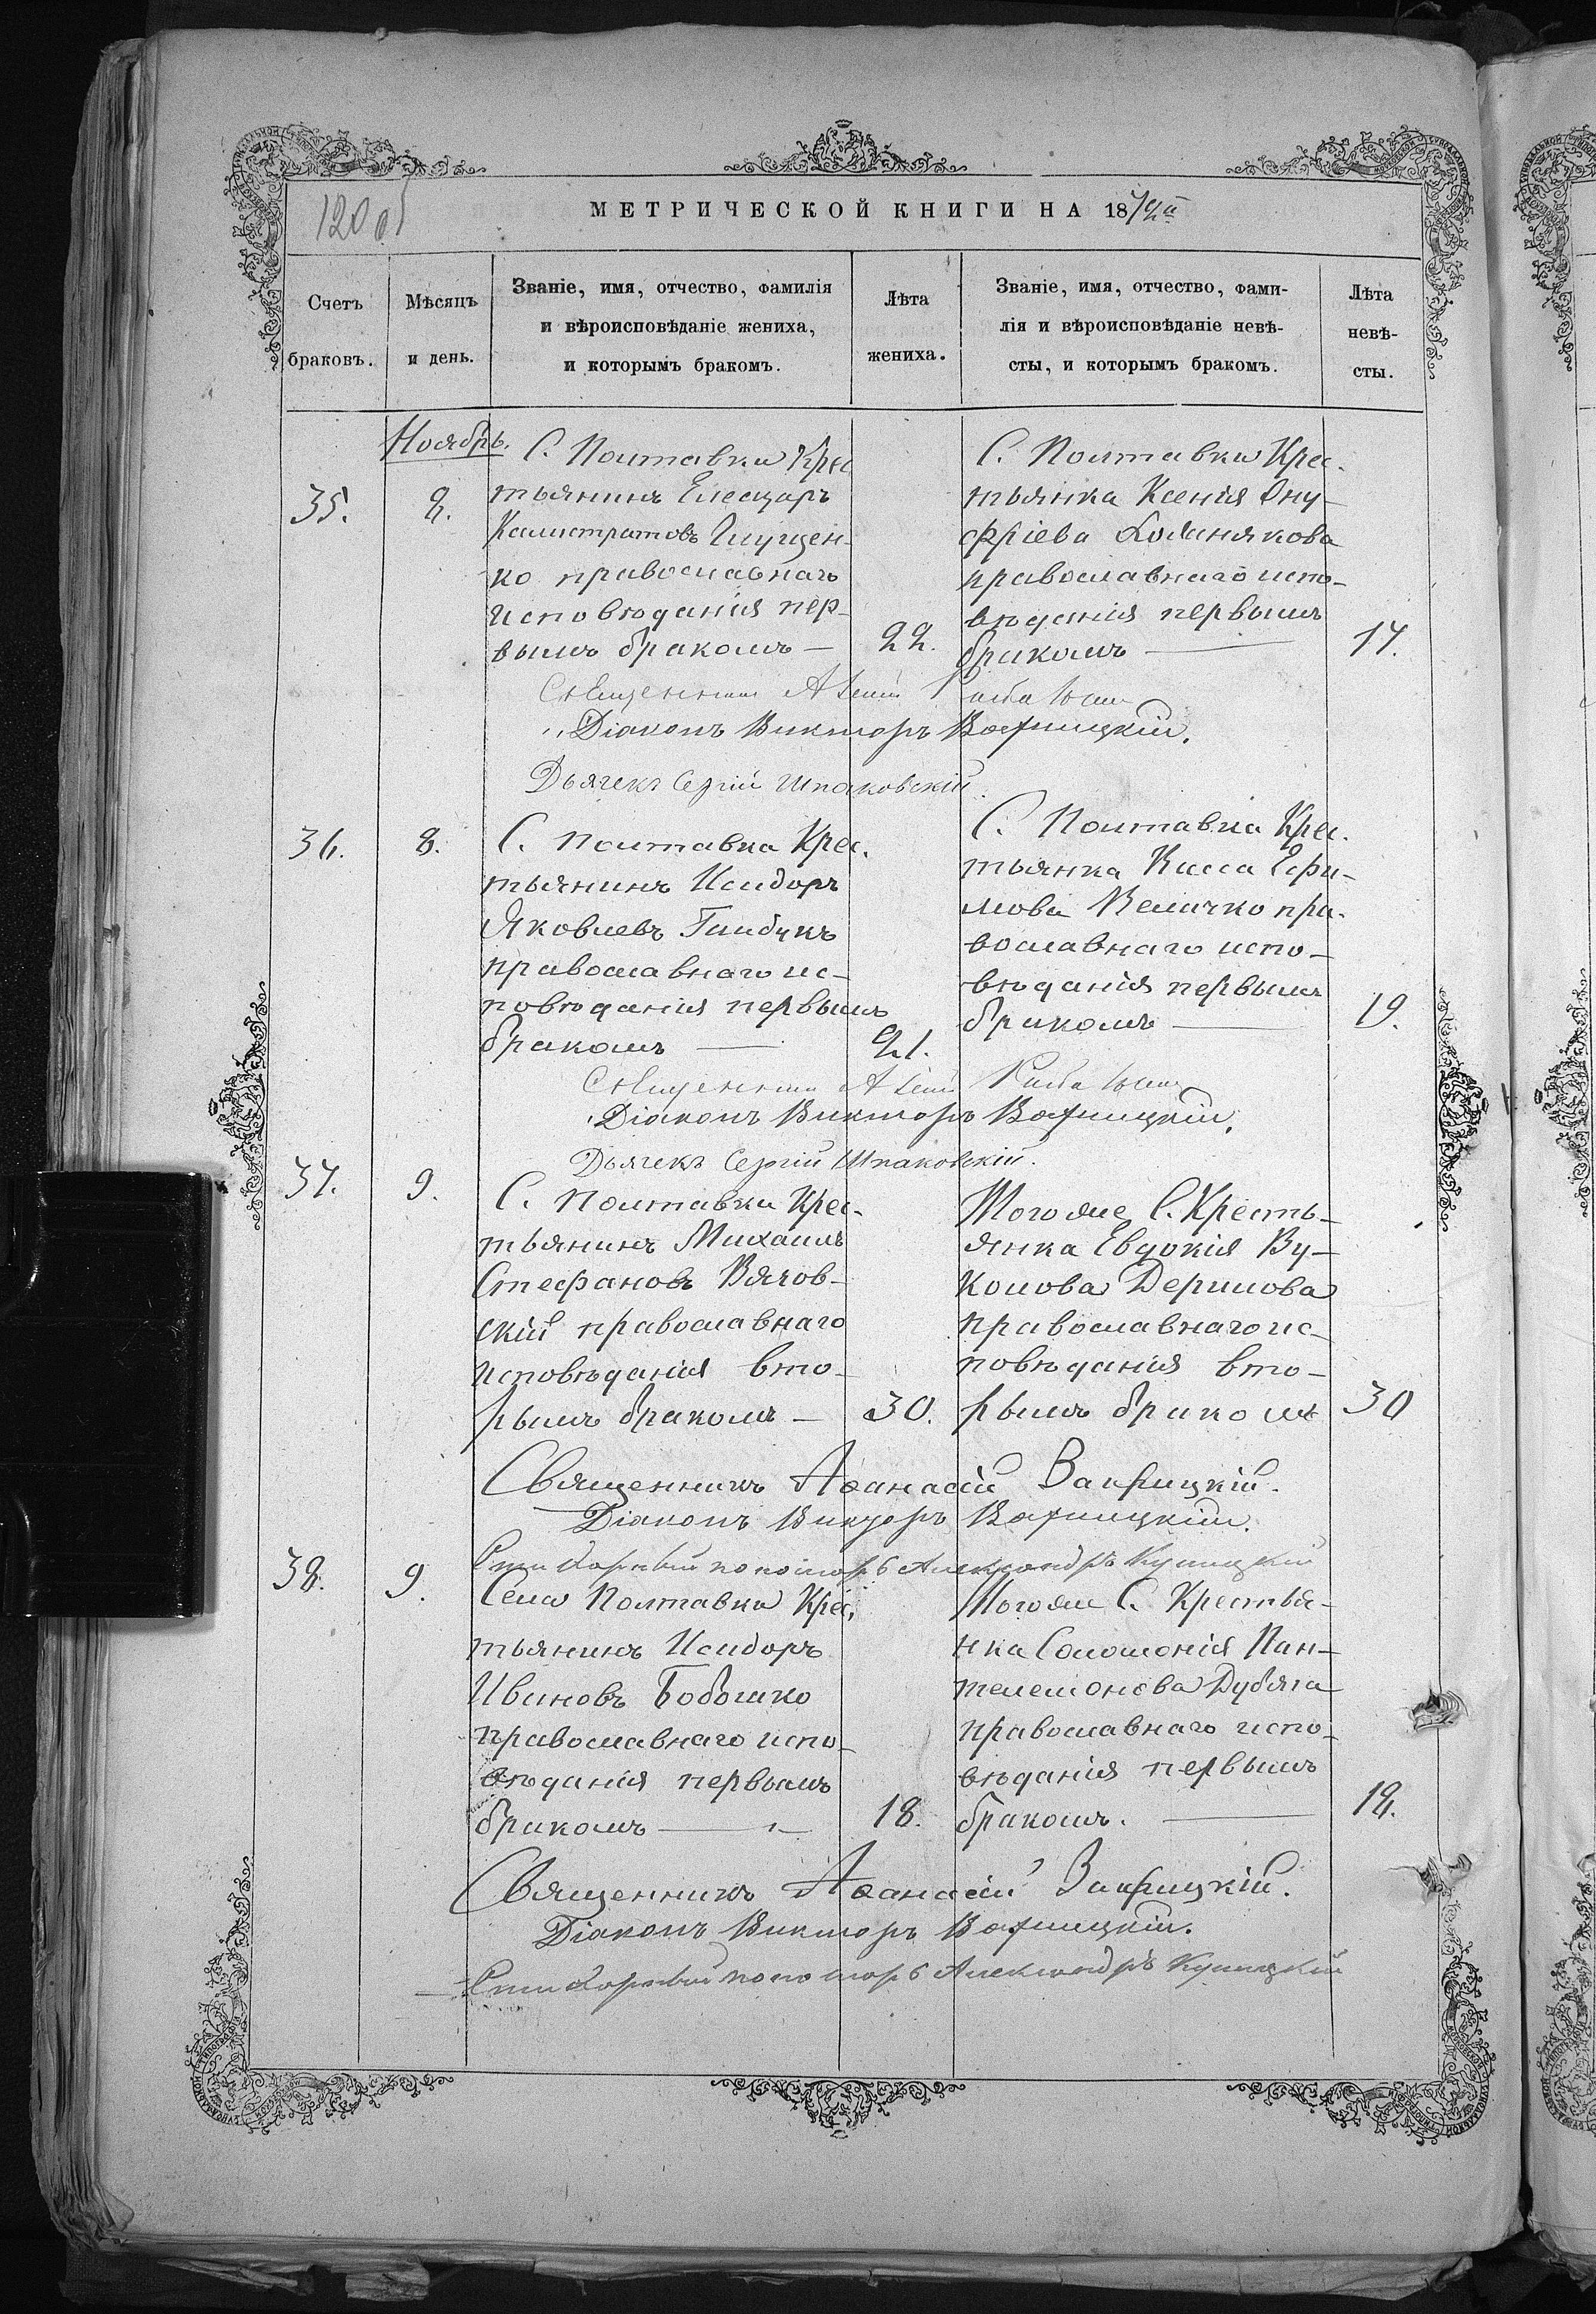 120 об
МЕТРИЧЕСКОЙ КНИГИ НА 1872й
Счетъ
браковъ.
Мѣсяцъ
и день.
Званіе, имя, отчество, фамилія
и вѣроисповѣданіе жениха,
и которымъ бракомъ.
Лѣта
жениха.
Званіе, имя, отчество, фами-
лія и вѣроисповѣданіе невѣ-
сты, и которымъ бракомъ.
Лѣта
невѣ-
сты.
Ноябрь.
35.
8.
С. Полтавки Крес
тьянинъ Елеазаръ
Калистратовъ Глущен-
ко православнаго
исповѣданія пер-
вымъ бракомъ —
22.
С. Полтавки Крес-
тьянка Ксенія Ону-
фріева
православнаго испо-
вѣданія первымъ
бракомъ —
17.
Священникъ
Діаконъ Викторъ Варницкій.
Дьячекъ Сергій Шпаковскій.
36.
8.
С. Полтавка Крес.
тьянинъ Исидоръ
Яковлевъ
православнаго ис-
повѣданія первымъ
бракомъ —
21.
С. Полтавка Крес.
тьянка Васса Ефи-
мова Величко пра-
вославнаго испо-
вѣданія первымъ
бракомъ —
19.
Священникъ
Діаконъ Викторъ Варницкій.
Дьячекъ Сергій Шпаковскій.
37.
9.
С. Полтавки Крес-
тьянинъ Михаилъ
Стефановъ Вячов-
скій православнаго
исповѣданія вто-
рымъ бракомъ —
30.
Того же С. Кресть-
янка Евдокія Ву-
колова Дерилова
православнаго ис-
повѣданія вто-
рымъ бракомъ
30
Священникъ Аѳанасій
Діаконъ Викторъ Варницкій.
Александръ Куницкій
38.
9.
Села Полтавки Крес,
тьянинъ Исидоръ
Ивановъ Бобошко
православнаго испо-
вѣданія первымъ
бракомъ —
18.
Того же С. Крестья-
нка Соломонія Пан-
телемонова Дубяга
православнаго испо-
вѣданія первымъ
бракомъ. —
18.
Священникъ Аѳанасій
Діаконъ Викторъ Варницкій.
Александръ Куницкій